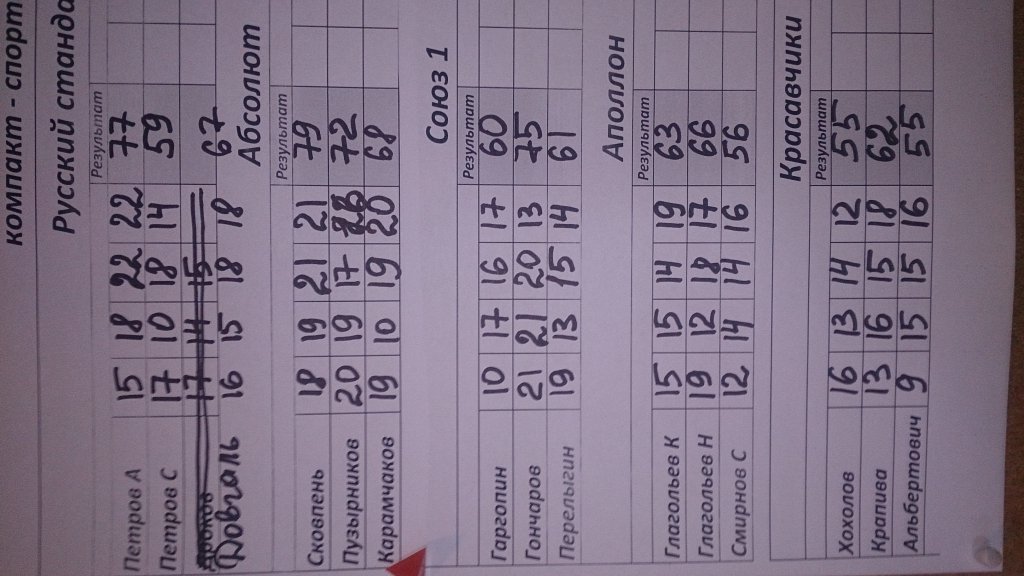 компакт - спорт
Русский станда
Результат
Петров А 15 18 22 22 77
Петров С 17 10 18 14 59
17 14 15
Довгаль 16 15 18 18 67
Абсолют
Результат
Сковпень 18 19 21 21 79
Пузырников 20 19 17 72
Карамчаков 19 10 19 20 68
Союз 1
Результат
Гаргопин 10 17 16 17 60
Гончаров 21 21 20 13 75
Перелыгин 19 13 15 14 61
Аполлон
Результат
Глагольев К 15 15 14 19 63
Глагольев Н 19 12 18 17 66
Смирнов С 12 14 14 16 56
Красавчики
Результат
Хохолов 16 13 14 12 55
Крапива 13 16 15 18 62
Альбертович 9 15 15 16 55